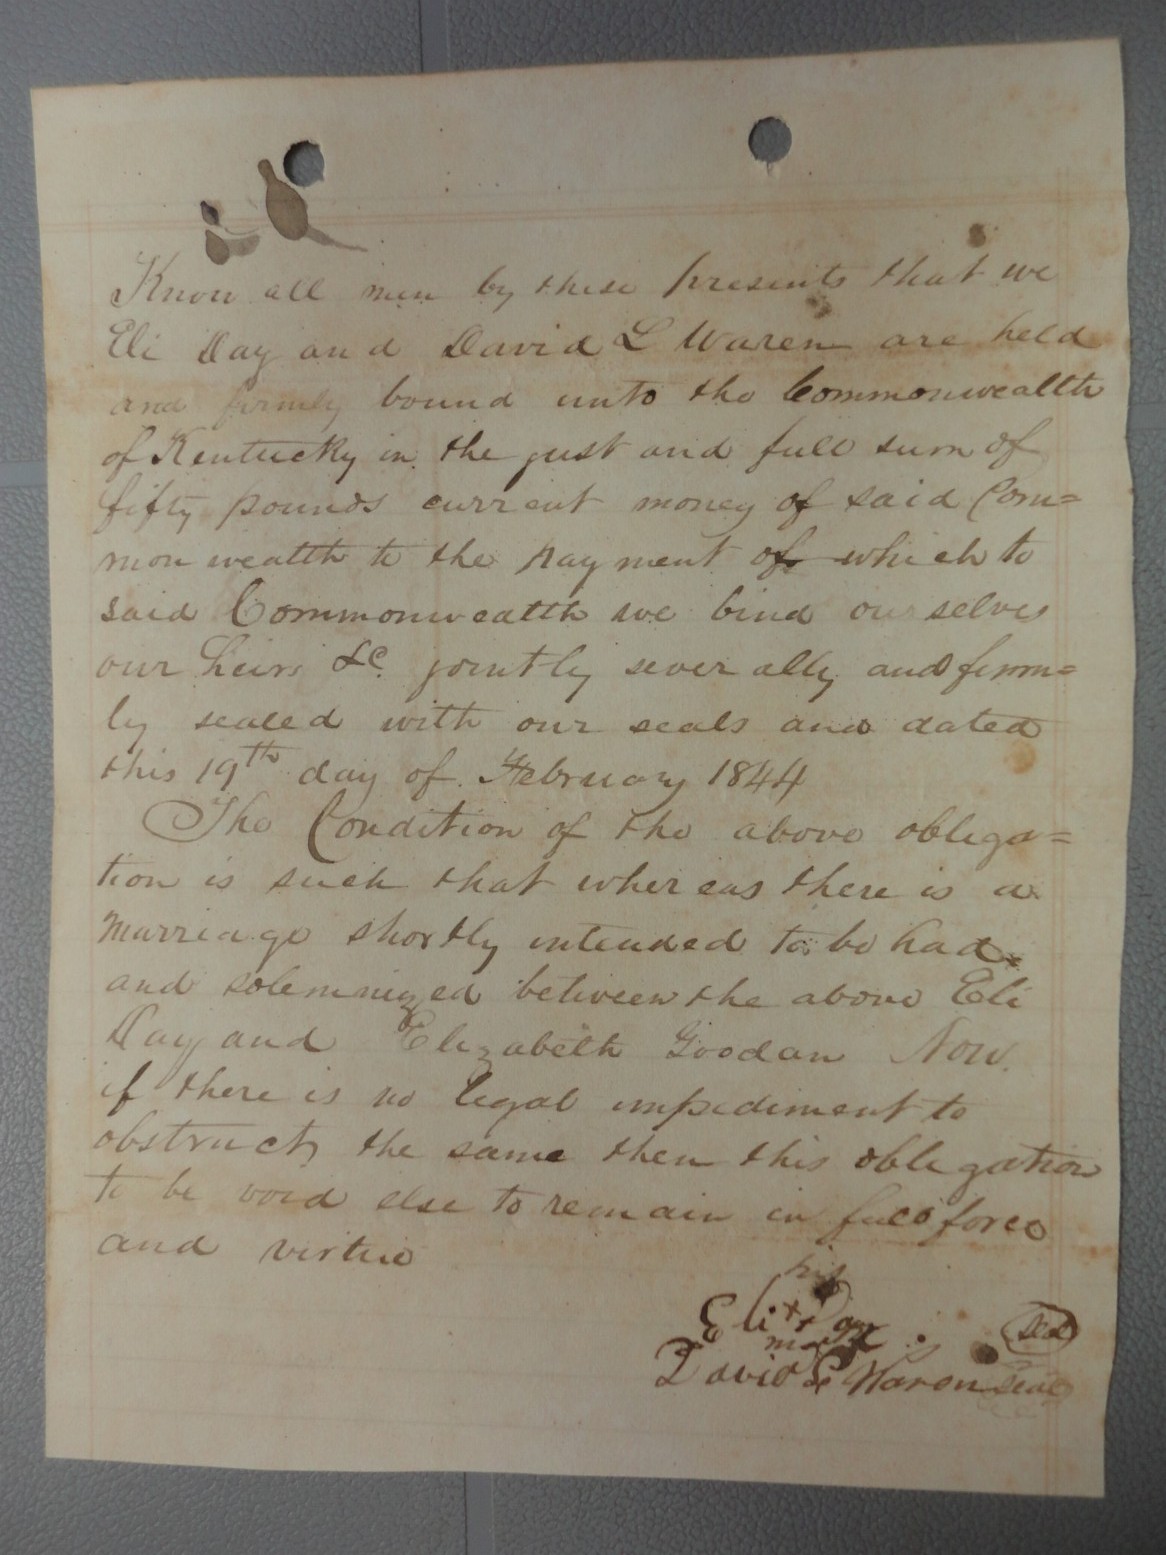 Know all men by these presents that we
Eli Day and David L Waren are held
and firmly bound unto the Commonwealth
of Kentucky in the just and full sum of
fifty pounds current money of said Com=
mon wealth to the payment of which to
said Commonwealth we bind ourselves
our heirs &c. jointly severally and firm=
ly sealed with our seals and dated
this 19th day of February 1844
The Condition of the above obliga=
tion is such that whereas there is a
marriage shortly intended to be had
and solemnized between the above Eli
Day and Elizabeth Goodan Now.
if there is no legal impediment to
obstruct the same then this obligation
to be void else to remain in full force
and virtue
his
Eli x Day Seal
mark
David L Waren Seal